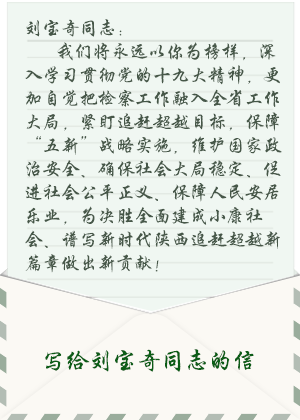 刘宝奇同志：
我们将永远以你为榜样，深
入学习贯彻党的十九大精神，更
加自觉把检察工作融入全省工作
大局，紧盯追赶超越目标，保障
“五新”战略实施，维护国家政
治安全、确保社会大局稳定、促
进社会公平正义、保障人民安居
乐业，为决胜全面建成小康社
会、谱写新时代陕西追赶超越新
篇章做出新贡献！
写给刘宝奇同志的信